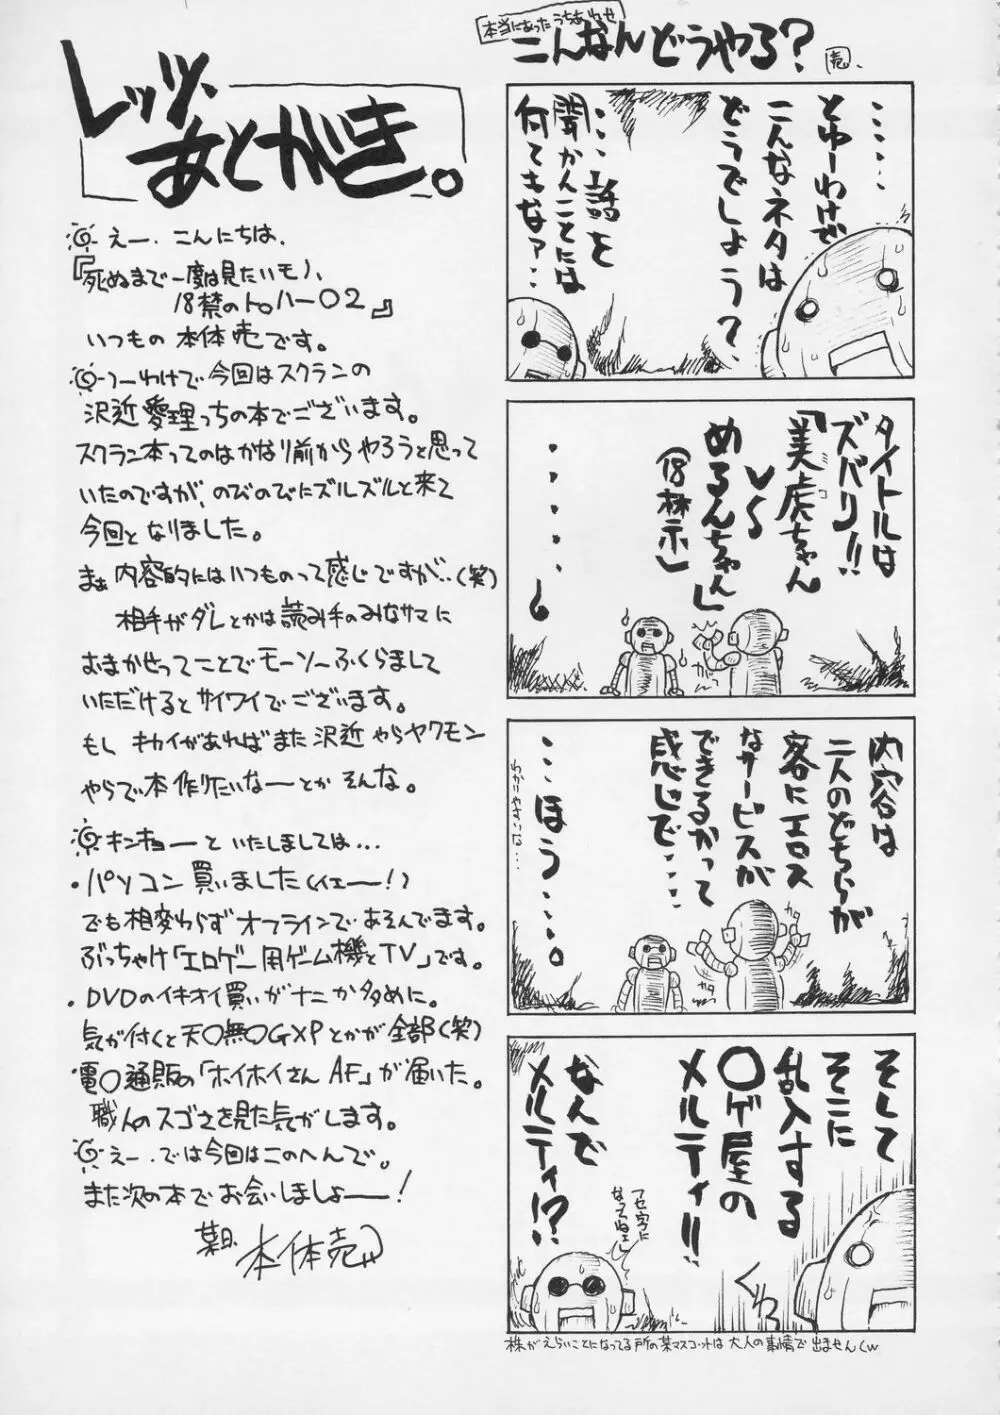 レッツ、
あとがき。
えー、こんにちは、
『死ぬまで一度は見たいモノ、
18禁のトロハー〇2』
いつもの 本体売です。
つーわけで今回はスクランの
沢近愛理っちの本でございます。
スクラン本ってのはかなり前からやろうと思って
いたのですが、のびのびにズルズルと来て
今回となりました。
まぁ内容的にはいつものって感じですが‥(笑)
相手がダレとかは読み手のみなサマに
おまかせってことでモーソーふくらまして
いただけるとサイワイでございます。
もし キカイがあればまた沢近やらヤクモン
やらで本作りたいなーとかそんな。
キンキョーといたしましては…
・パソコン買いました(イェー!)
でも相変わらずオフラインであそんでます。
ぶっちゃけ「エロゲー用ゲーム機とTV」です。
・DVDのイキオイ買いがナニか多めに。
気が付くと天〇無〇GXPとかが全部(笑)
電〇通販の「ホイホイさんAF」が届いた。
職人のスゴさを見た気がします。
えー、では今回はこのへんで。
また次の本でお会いしましょー!
某日、本体売
本当にあったうちあわせ
こんなんどうやる?
売
‥‥‥
とゆーわけで
こんなネタは
どうでしょう?
‥‥話を
聞かんことには
何てもなァ‥
タイトルは
ズバリ!!
「美虎ちゃん
ミコ
VS
めるんちゃん」
(18禁)
‥‥‥‥
内容は
二人のどちらが
客にエロス
なサービスが
できるかって
感じで‥‥
‥‥ほう‥‥。
わかりやすいな…
カタ
カタ
そして
そこに
乱入する
〇ゲ屋の
メルティ!!
なんで
メルティ!?
フセ字に
なってねェし
くわっ
株がえらいことになってる所の某マスコットは大人の事情で出ませんくw